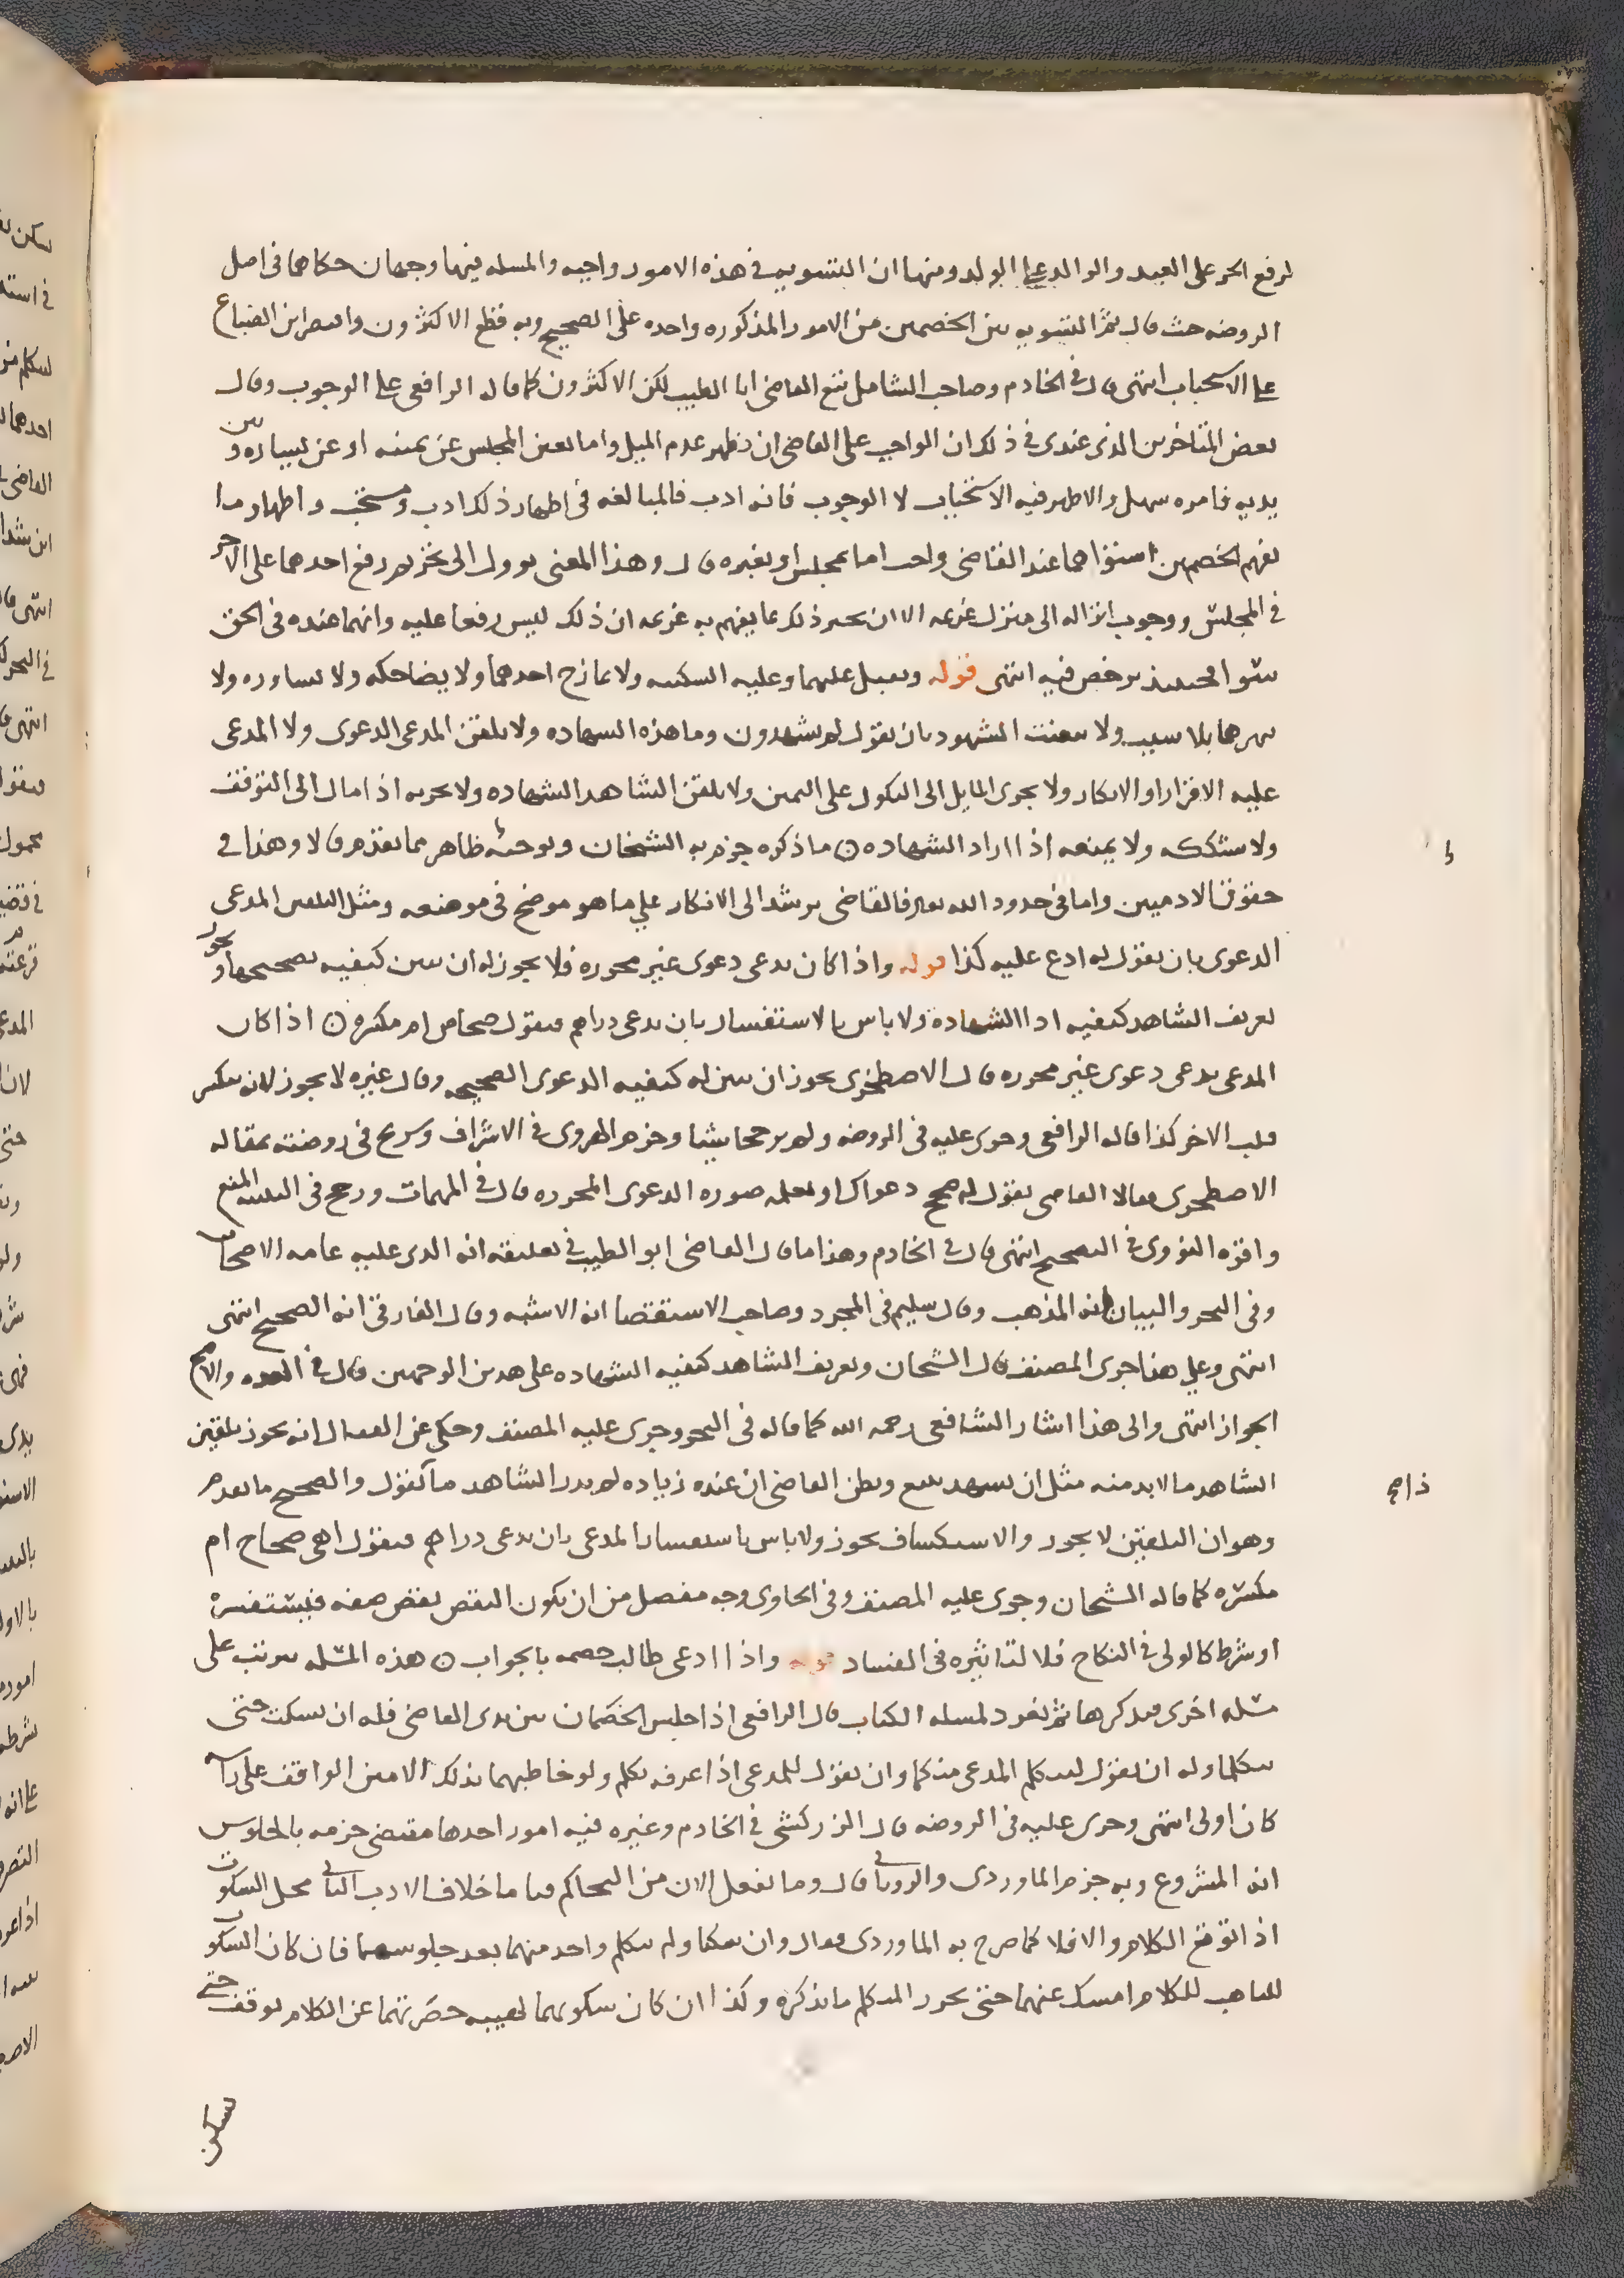 لرفع الحر على العبد والوالد على الولد ومنها ان التسويه في هذه الامور واجبه والمسله فيها وجهان حكاهما في اصل
الروضه حيث قال ثم التسويه بين الخصمين من الامور المذكوره واجبه على الصحيح وبه قطع الاكثرون واقتصر ابن الصباغ
على الاستحباب انتهى قال في الخادم وصاحب الشامل تبع القاضي ابا الطيب لكن الاكثرون كما قاله الرافعي على الوجوب وقال
بعض المتاخرين الذي عندي في ذلك ان الواجب على القاضي ان يظهر عدم الميل واما تعين المجلس عن يمينه او عن يساره وبين
يديه فامره سهل والاظهر فيه الاستحباب لا الوجوب فانه ادب فالمبالغه في اظهار ذلك ادب ومستحب واظهار ما
يفهم الخصمين استواهما عند القاضي واجب اما بمجلس او بغيره قال وهذا المعنى يوول الى تحريم رفع احدهما على الاخر
في المجلس ووجوب انزاله الى منزل غريمه الا ان يجبر ذلك بما يفهم به غريمه ان ذلك ليس رفعا عليه وانهما عنده في الحق
سوا فحينيذ يرخص فيه انتهى قوله ويقبل عليهما وعليه السكينه ولا يمازح احدهما ولا يضاحكه ولا يساوره ولا
ينهرهما بلا سبب ولا يعنت الشهود بان يقول لم يشهدون وما هذه الشهاده ولا يلقن المدعي الدعوى ولا المدعى
عليه الاقرار او الانكار ولا يجري المايل الى النكول على اليمين ولا يلقن الشاهد الشهاده ولا يجريه اذا مال الى التوقف
ولا يشككه ولا يمنعه اذا اراد الشهاده ن ما ذكره جزم به الشيخان وتوجيهه ظاهر مما تقدم قالا وهذا في
حقوق الادميين واما في حدود الله تعالى فالقاضي يرشد الى الانكار على ما هو موضح في موضعه ومثل التلقين المدعي
الدعوى بان يقول له ادع عليه كذا قوله واذا كان يدعي دعوى غير محرره فلا يجوز له ان يبين كيفيه تصحيحها ويجوز
تعريف الشاهد كيفيه ادا الشهاده ولا باس بالاستفسار بان يدعي دراهم فيقول صحاح ام مكسره ن اذا كان
المدعي يدعي دعوى غير محرره قال الاصطخري يجوز ان يبين له كيفيه الدعوى الصحيحه وقال غيره لا يجوز لانه ينكسر
قلب الاخر كذا قاله الرافعي وجرى عليه في الروضه ولم يرجحا شيا وجزم الهروي في الاشراف وشريح في روضته بمقاله
الاصطخري فقالا القاضي يقول له صحح دعواك او يعلمه صوره الدعوى المحرره قال في المهمات ورجح في التنبيه المنع
واقره النووي في التصحيح انتهى قال في الخادم وهذا ما قال القاضي ابو الطيب في تعليقه انه الذي عليه عامه الاصحاب
وفي البحر والبيان انه المذهب وقال سليم في المجرد وصاحب الاستقصا انه الاشبه وقال الفارقي انه الصحيح انتهى
انتهى وعلى هذا جرى المصنف قال الشيخان وتعريف الشاهد كيفيه الشهاده على هذين الوجهين قال في العده والاصح
الجواز انتهى والى هذا اشار الشافعي رحمه الله كما قاله في البحر وجرى عليه المصنف وحكى عن القفال انه يجوز تلقين
الشاهد ما لا بد منه مثل ان يشهد ببيع ويظن القاضي ان عنده زياده لم يدر الشاهد ما يقول والصحيح ما تقدم
وهو ان التلقين لا يجوز والاستكشاف يجوز ولا باس باستفسار المدعي بان يدعي دراهم فيقول اهي صحاح ام
مكسره كما قاله الشيخان وجرى عليه المصنف وفي الحاوي وجه مفصل من ان يكون النقص بعض صفه فيستفسره
او شرط كالولي في النكاح فلا لتاثيره في الفساد قوله واذا ادعى طالب خصمه بالجواب ن هذه المسله يترتب على
مسله اخرى فيذكرها ثم نعود لمسله الكتاب قال الرافعي اذا جلس الخصمان بين يدي القاضي فله ان يسكت حتى
يتكلما وله ان يقول ليتكلم المدعي منكما وان يقول للمدعي اذا عرفه تكلم ولو خاطبهما بذلك الامين الواقف على راسه
كان اولى انتهى وجرى عليه في الروضه قال الزركشي في الخادم وغيره فيه امور احدها مقتضى جزمه بالجلوس
انه المشروع وبه جزم الماوردي والروياني قال وما يفعل الان من التحاكم قياما خلاف الادب الثاني محل السكوت
اذا توقع الكلام والا فلا كما صرح به الماوردي فقال وان سكتا ولم يتكلم واحد منهما بعد جلوسهما فان كان السكوت
للتاهب للكلام امسك عنهما حتى يحرر المتكلم ما يذكره وكذا ان كان سكوتهما لهيبه حضرتهما عن الكلام توقف حتى
يسكن